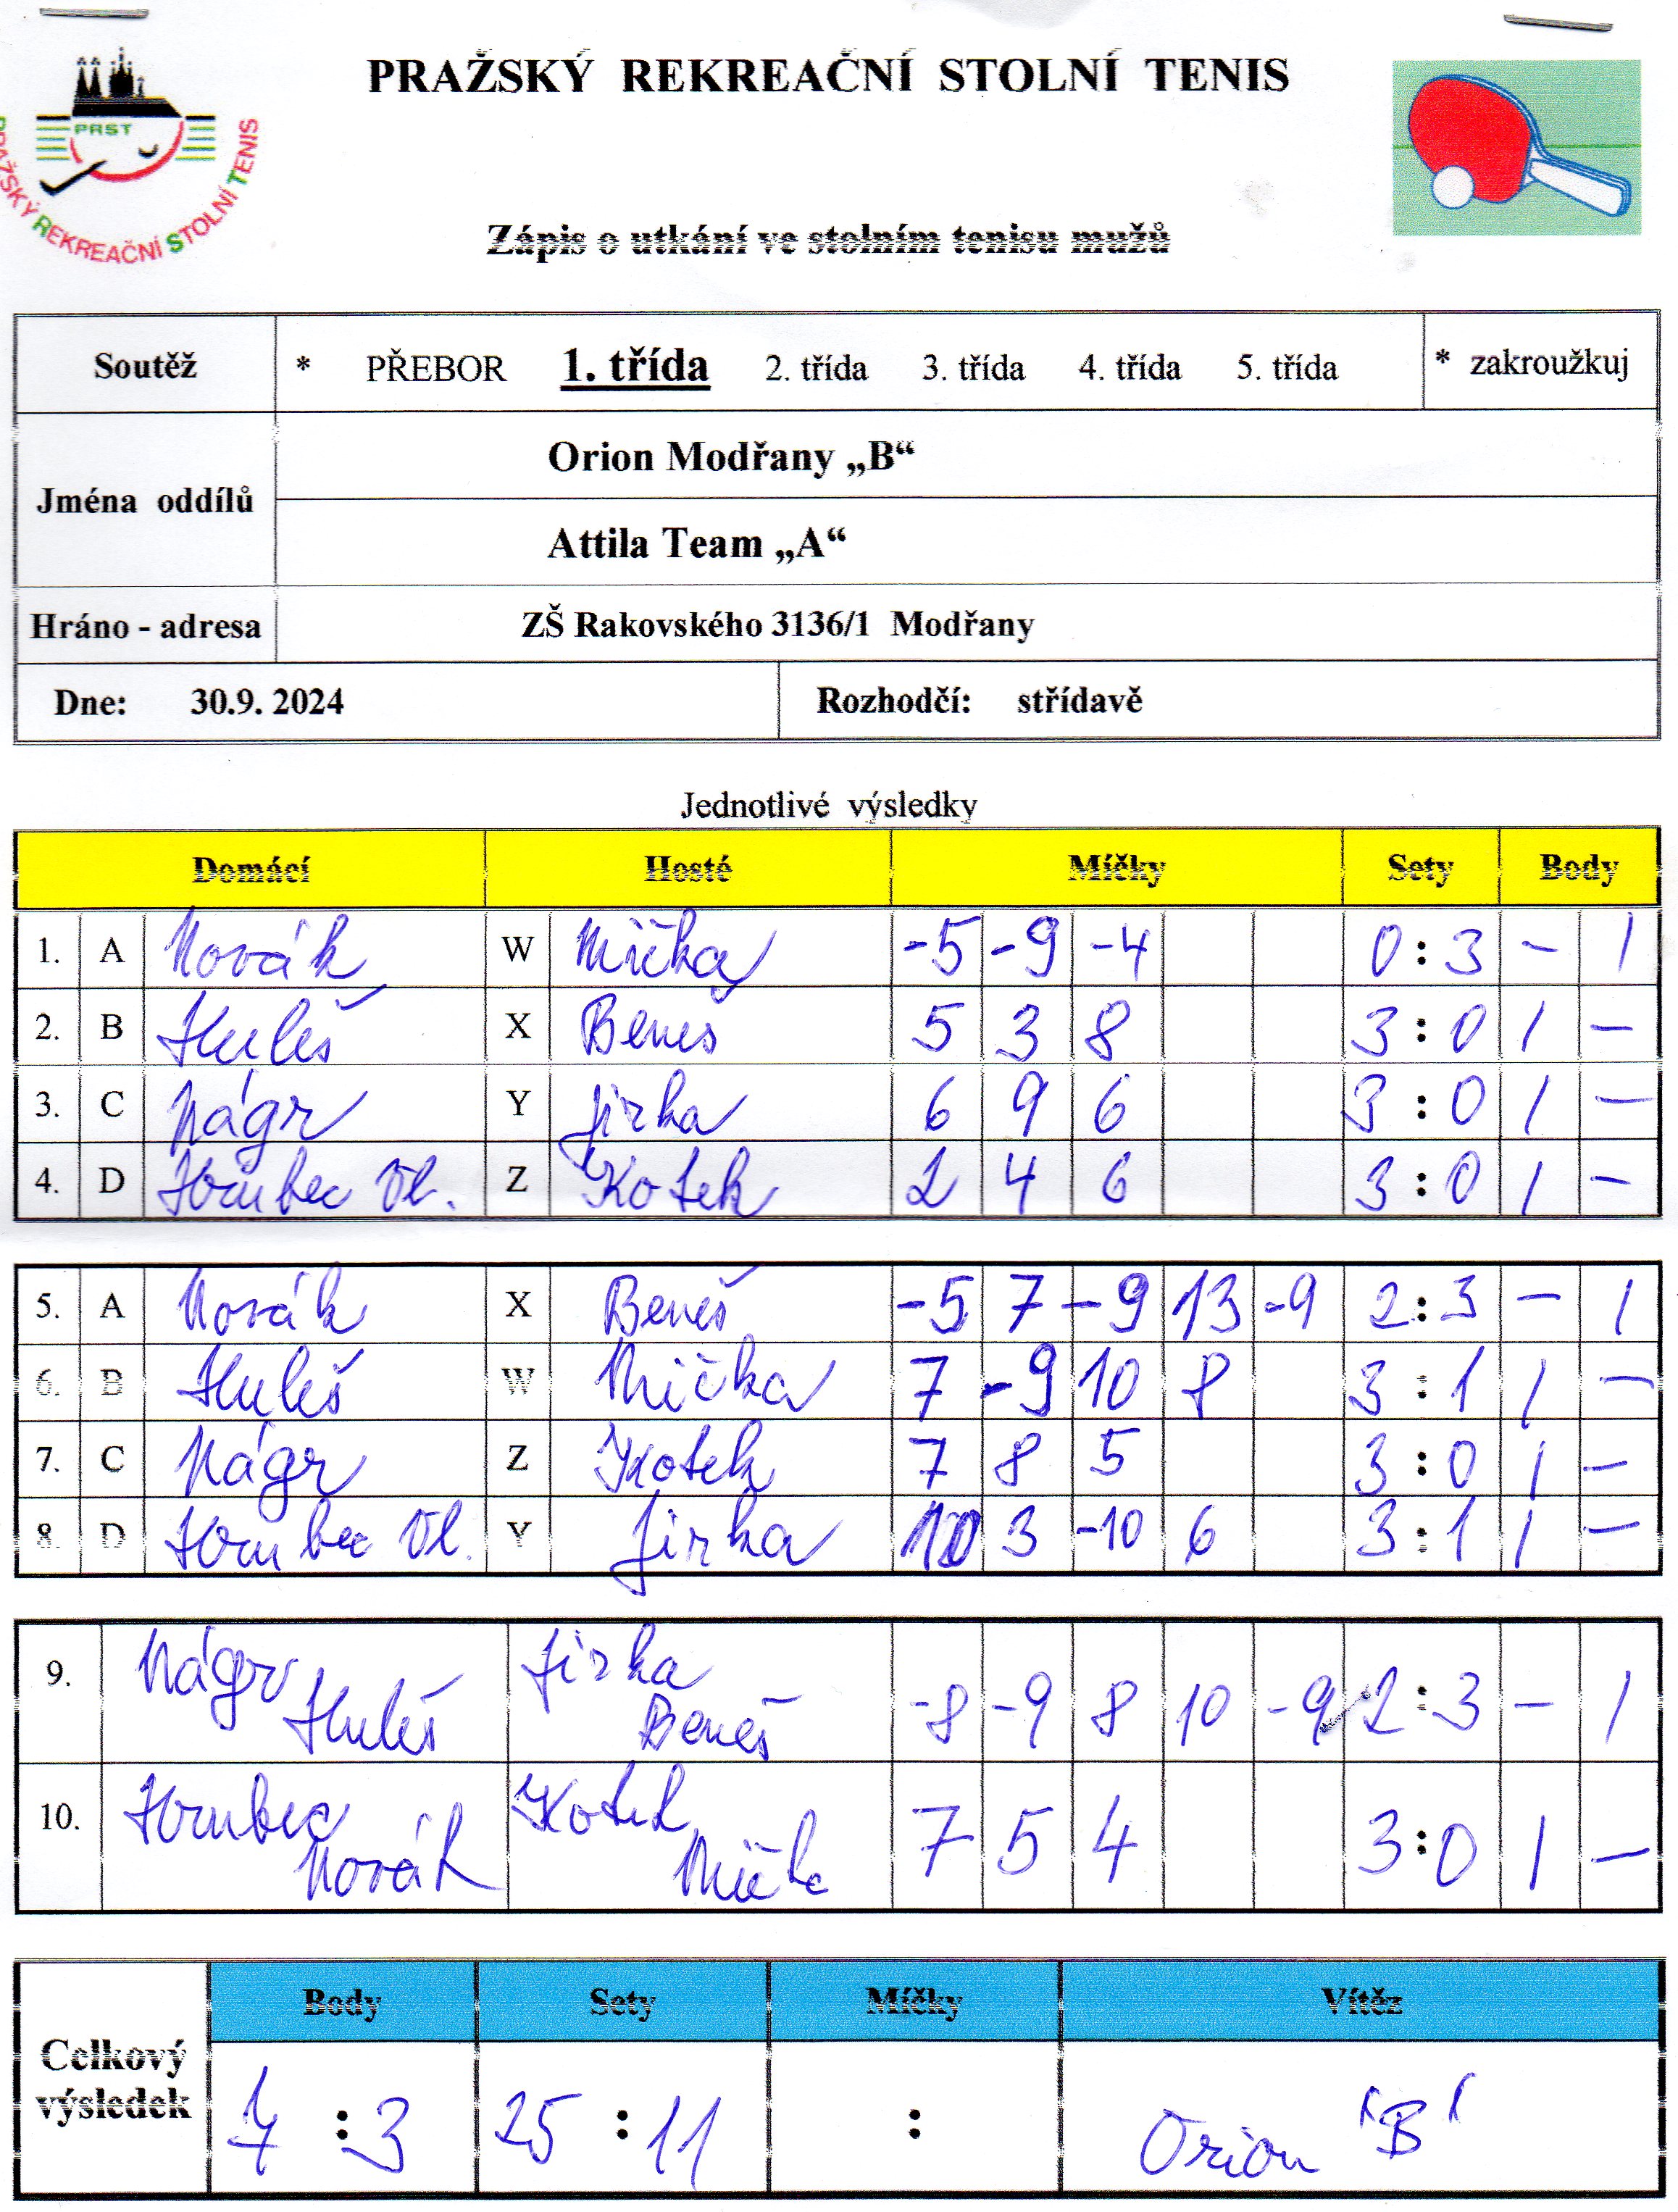 PRAŽSKÝ REKREAČNÍ STOLNÍ TENIS
PRST
PRAŽSKÝ REKREAČNÍ STOLNÍ TENIS
Zápis o utkání ve stolním tenisu mužů
Soutěž * PŘEBOR 1. třída 2. třída 3. třída 4. třída 5. třída * zakroužkuj
Jména oddílů
Orion Modřany „B“
Attila Team „A“
Hráno - adresa ZŠ Rakovského 3136/1 Modřany
Dne: 30.9. 2024 Rozhodčí: střídavě
Jednotlivé výsledky
Domácí Hosté Míčky Sety Body
1. A Novák W Mička -5 -9 -4 0 : 3 - 1
2. B Huleš X Beneš 5 3 8 3 : 0 1 -
3. C Nágr Y Jirka 6 9 6 3 : 0 1 -
4. D Hrubec Vl. Z Kotek 2 4 6 3 : 0 1 -
5. A Novák X Beneš -5 7 -9 13 -9 2 : 3 - 1
6. B Huleš W Mička 7 -9 10 8 3 : 1 1 -
7. C Nágr Z Kotek 7 8 5 3 : 0 1 -
8. D Hrubec Vl. Y Jirka 10 3 -10 6 3 : 1 1 -
9. Nágr Jirka
Huleš Beneš -8 -9 8 10 -9 2 : 3 - 1
10. Hrubec Kotek 7 5 4 3 : 0 1 -
Novák Mička
Body Sety Míčky Vítěz
Celkový výsledek 7 : 3 25 : 11 : Orion "B"